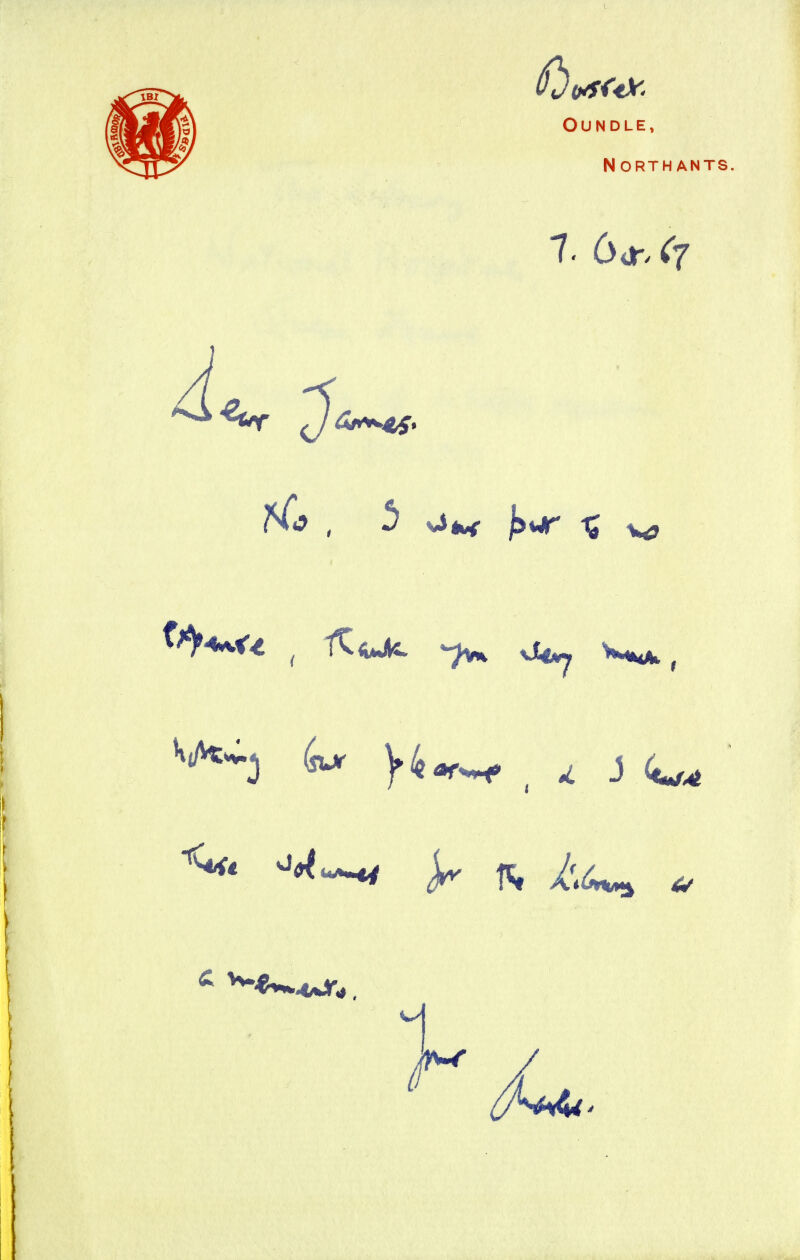 IBI
UBI AMOR
FIDES
OUNDLE,
NORTHANTS.
7. Oct. 67
Dear James.
No, I was put to no
expense, thank you very much,
nothing but pleasure, & I leave
these volumes for the Library as
a memento.
Yours
Charles.